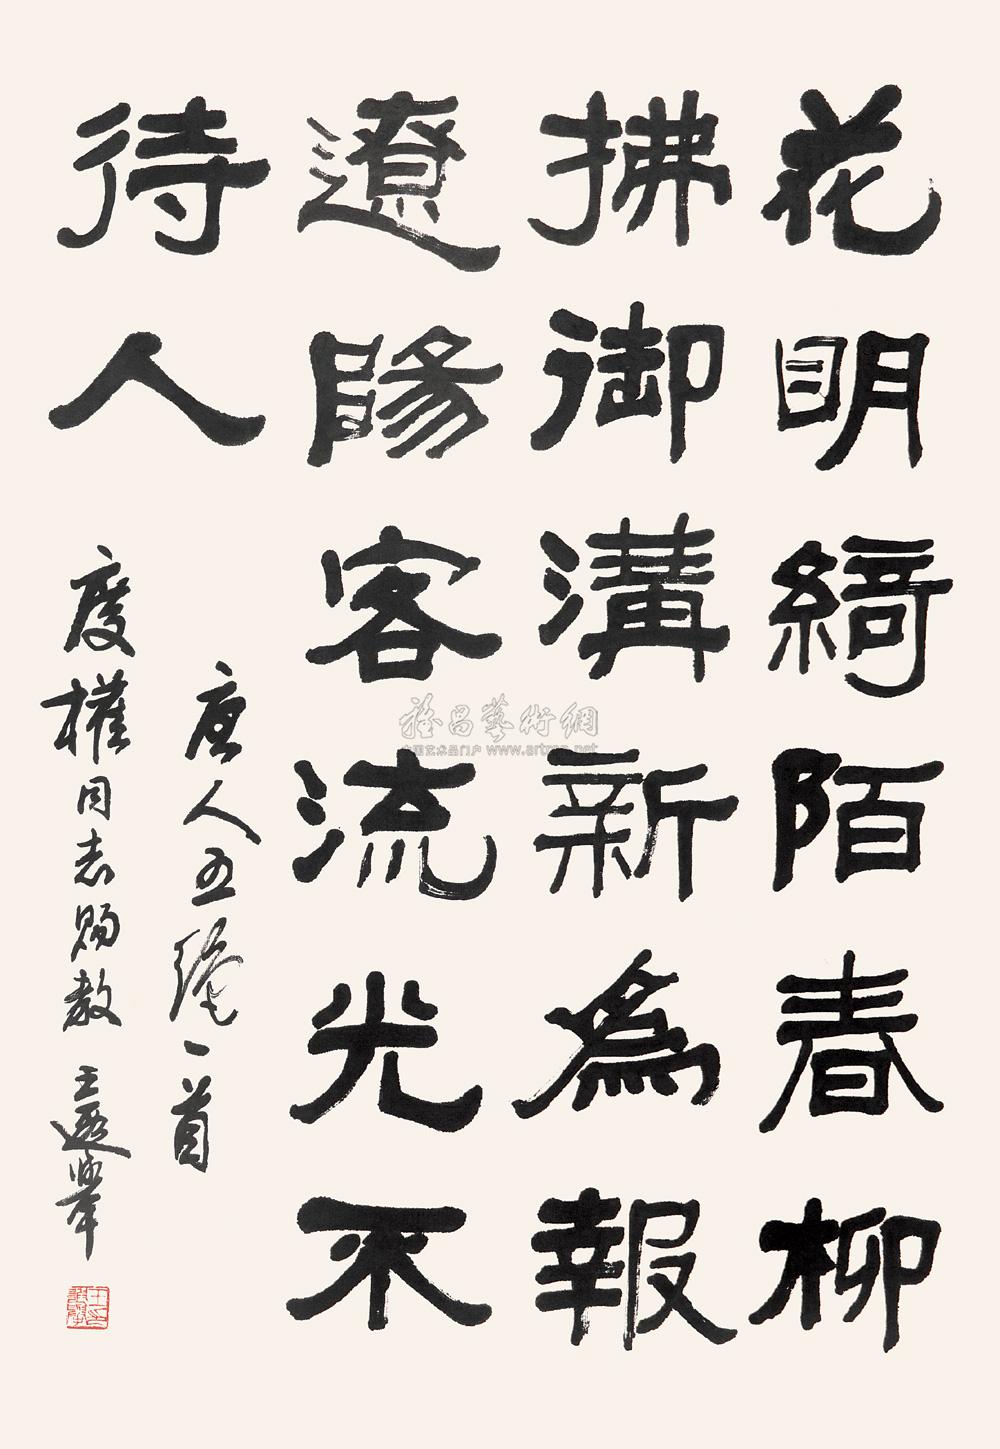 花明綺陌春柳
拂御溝新為報
遼陽客流光不
待人
唐人五絶一首
度權同志賜教 王遐舉
雅昌藝術網
中国艺术品门户 www.artron.net